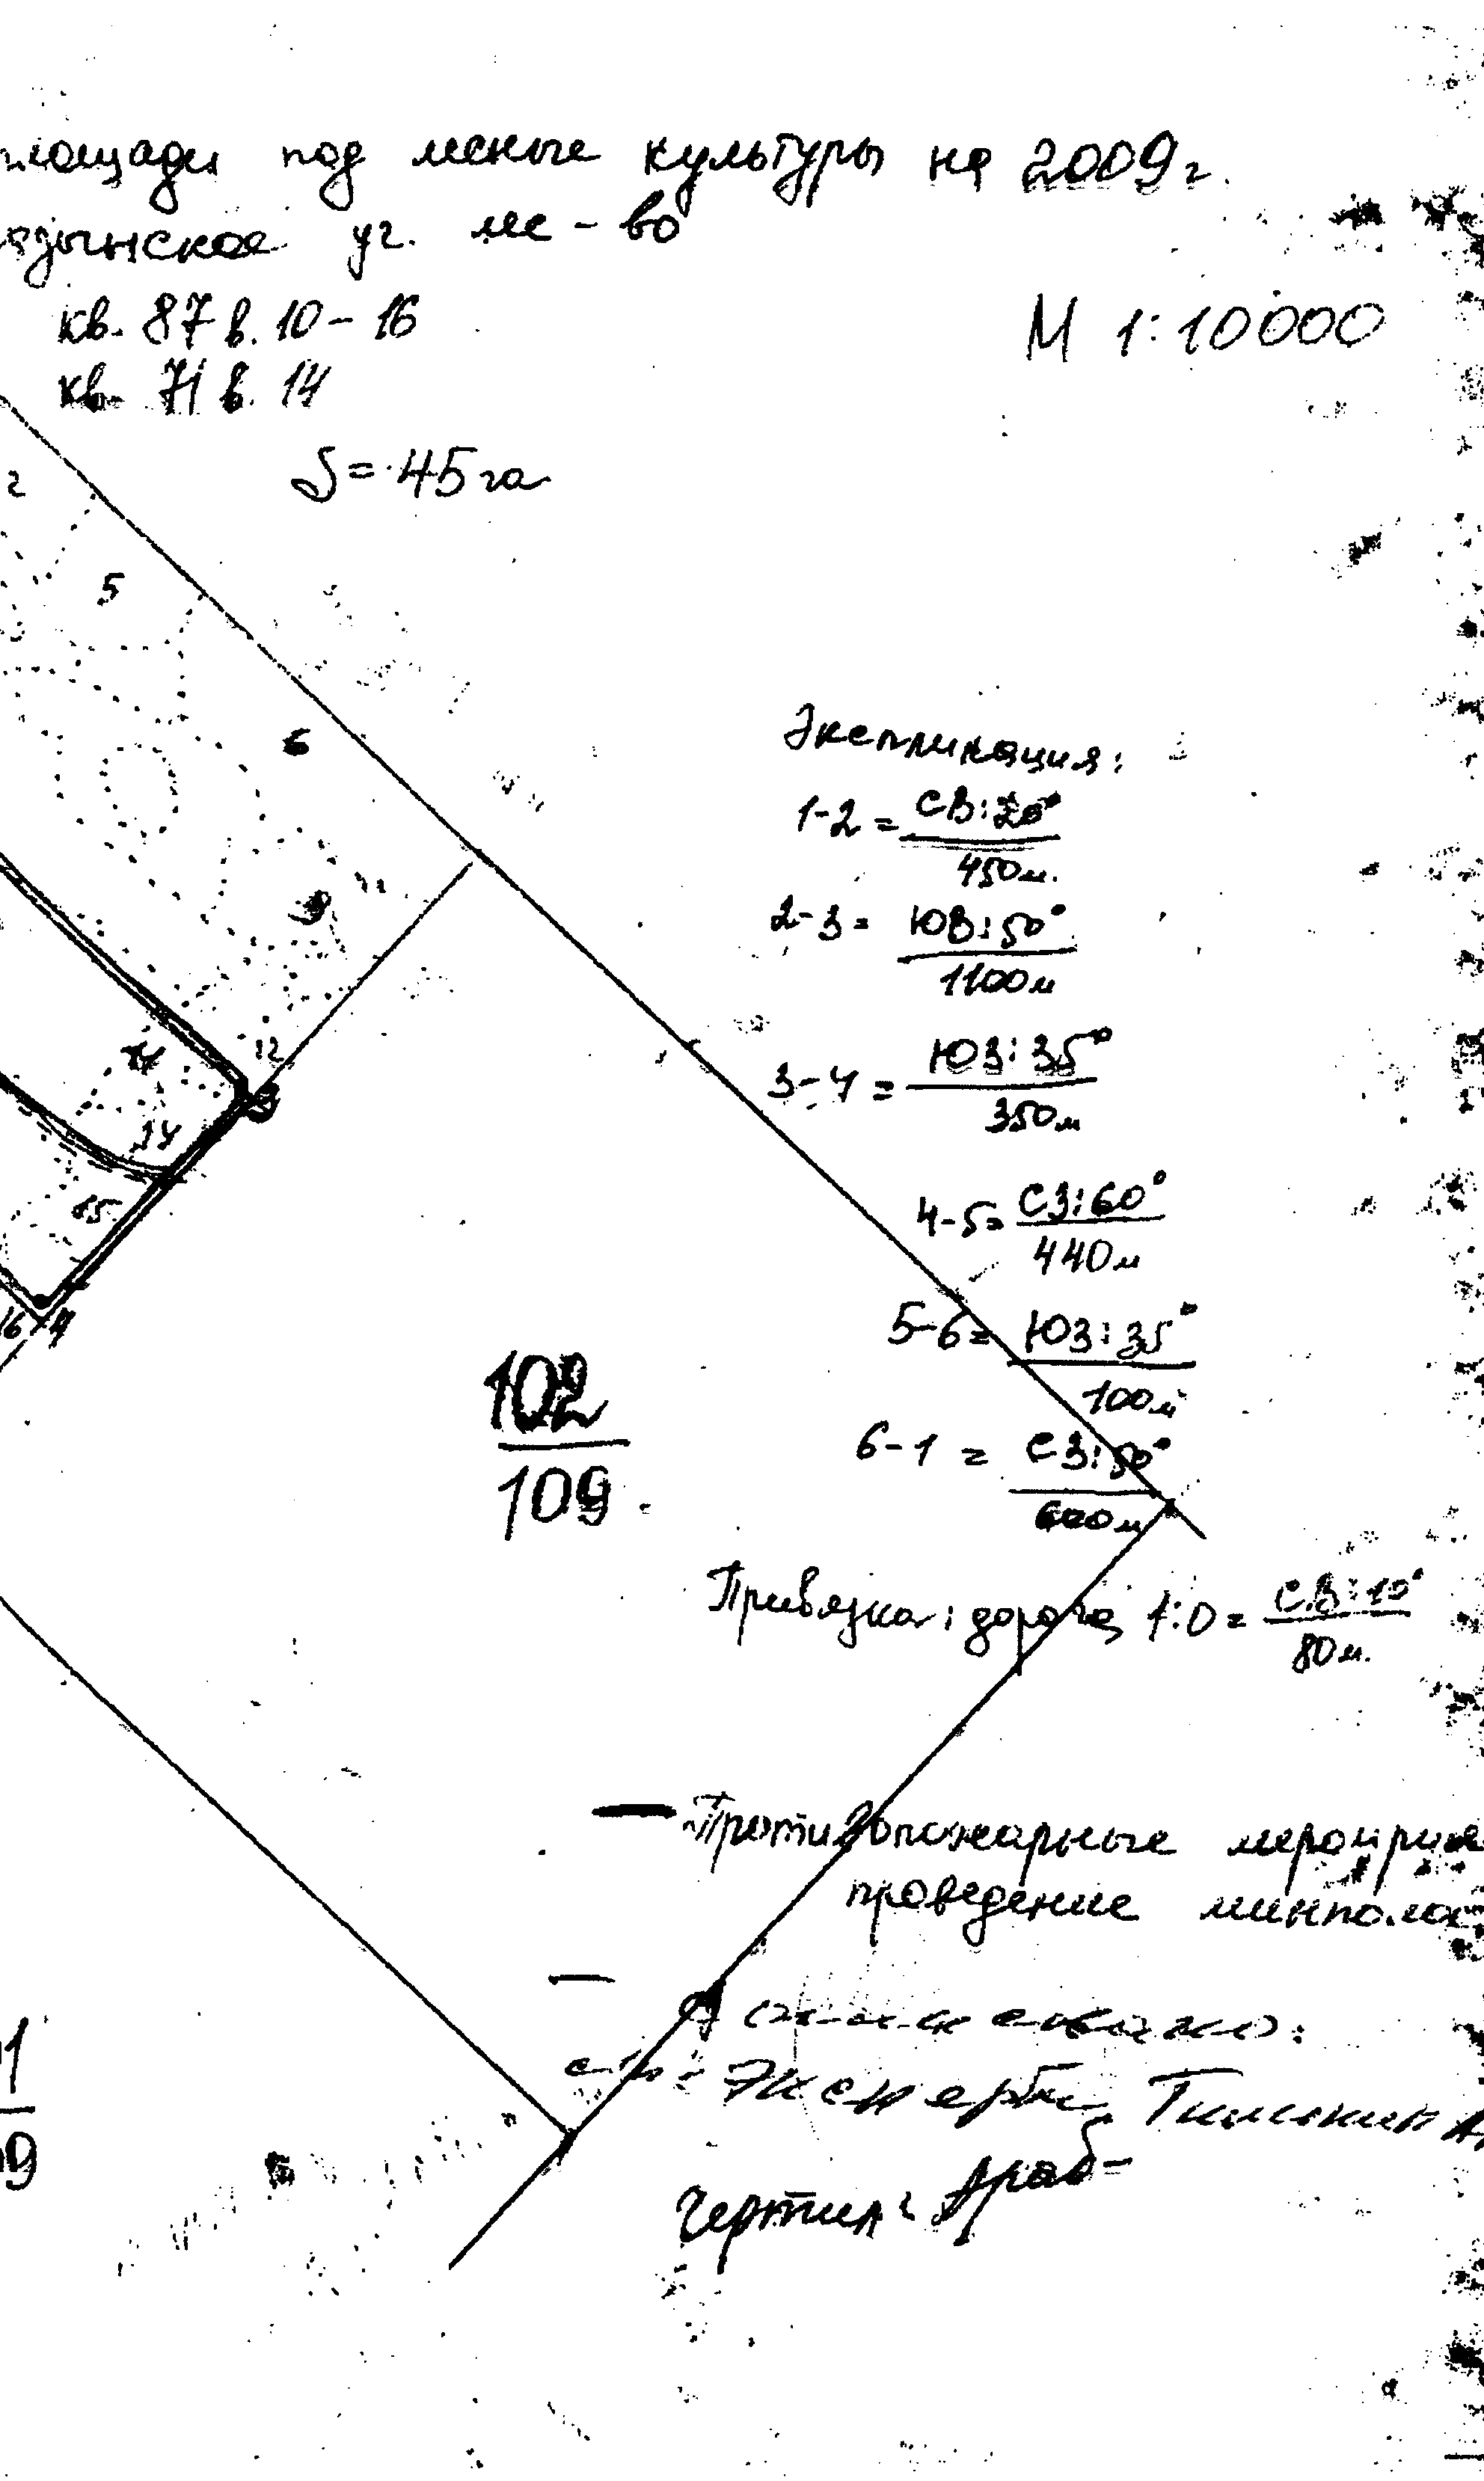 площади под лесные культуры на 2009г.
дынское уч. лес-во
кв. 87 в. 10-16
кв. 71 в. 14
М 1:10000
S = 45га
2
5
6
Экспликация:
1-2 = СВ:20°
450м.
2-3 = ЮВ:50°
1100м
3-4 = ЮЗ:35°
350м
4-5 = СЗ:60°
440м
5-6 = ЮЗ:35°
100м
6-1 = СЗ:50°
600м
12
3
14
15
16 4
102
109
Привязка: дорога 1:0 = СВ:10°
80м.
Противопожарные меро
проведение минпол
Чертил: